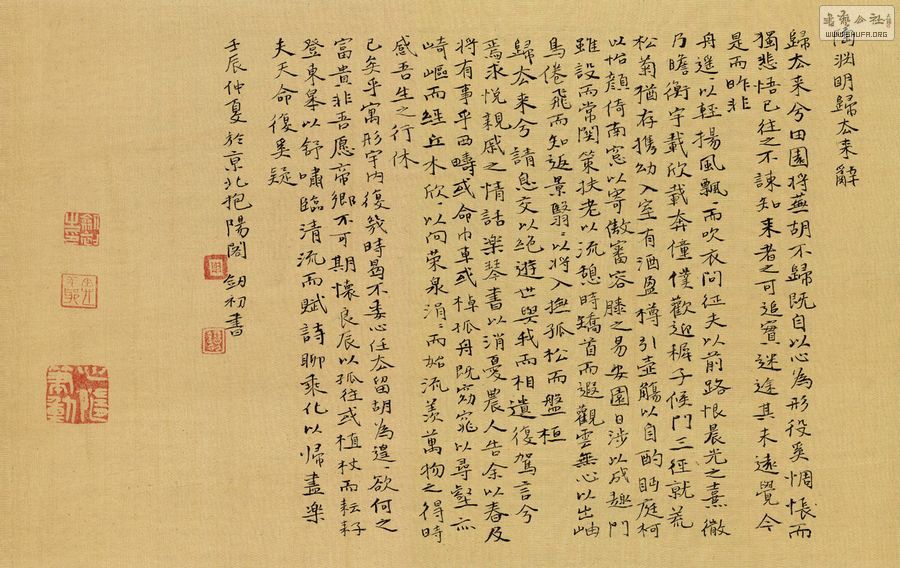 陶渊明歸去来辭
歸去来兮田園将蕪胡不歸既自以心為形役奚惆悵而
獨悲悟已往之不諫知来者之可追實迷途其未遠覺今
是而昨非
舟遥〻以輕揚風飄〻而吹衣问征夫以前路恨晨光之熹微
乃瞻衡宇載欣載奔僮僕歡迎稚子候门三徑就荒
松菊猶存攜幼入室有酒盈樽引壺觴以自酌眄庭柯
以怡顔倚南窓以寄傲審容膝之易安園日涉以成趣门
雖設而常関策扶老以流憩時矯首而遐觀雲無心以出岫
鳥倦飛而知返景翳〻以将入撫孤松而盤桓
歸去来兮請息交以絶遊世與我而相遺復駕言兮
焉求悦親戚之情話楽琴書以消憂農人告余以春及
将有事乎西疇或命巾車或棹孤舟既窈窕以尋壑亦
崎嶇而経丘木欣〻以向荣泉涓〻而始流羡萬物之得時
感吾生之行休
已矣乎寓形宇内復幾時曷不委心任去留胡為遑〻欲何之
富貴非吾愿帝鄉不可期懷良辰以孤往或植杖而耘耔
登東皋以舒嘯臨清流而賦詩聊乘化以歸盡楽
夫天命復奚疑
壬辰仲夏於京北抱陽閣 劍初書
書法公社